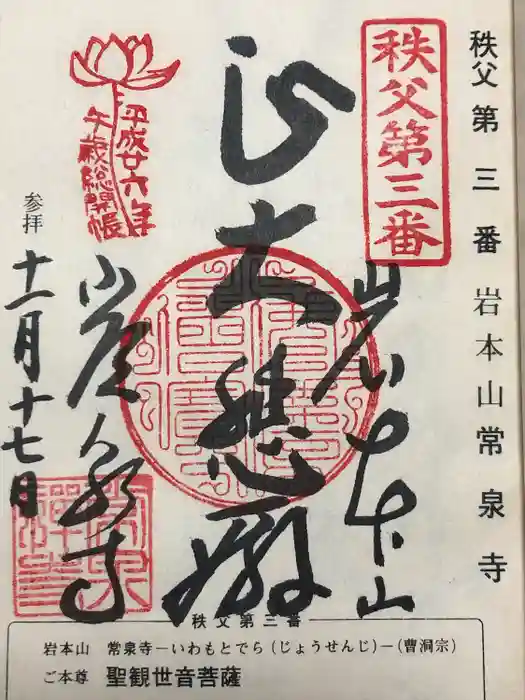 秩父第三番 岩本山常泉寺
秩父第三番
岩本山
大悲殿
常泉寺
平成廿六年
午歳総開帳
参拝
十一月十七日
秩父第三番
岩本山 常泉寺ーいわもとでら(じょうせんじ)ー(曹洞宗)
ご本尊 聖観世音菩薩